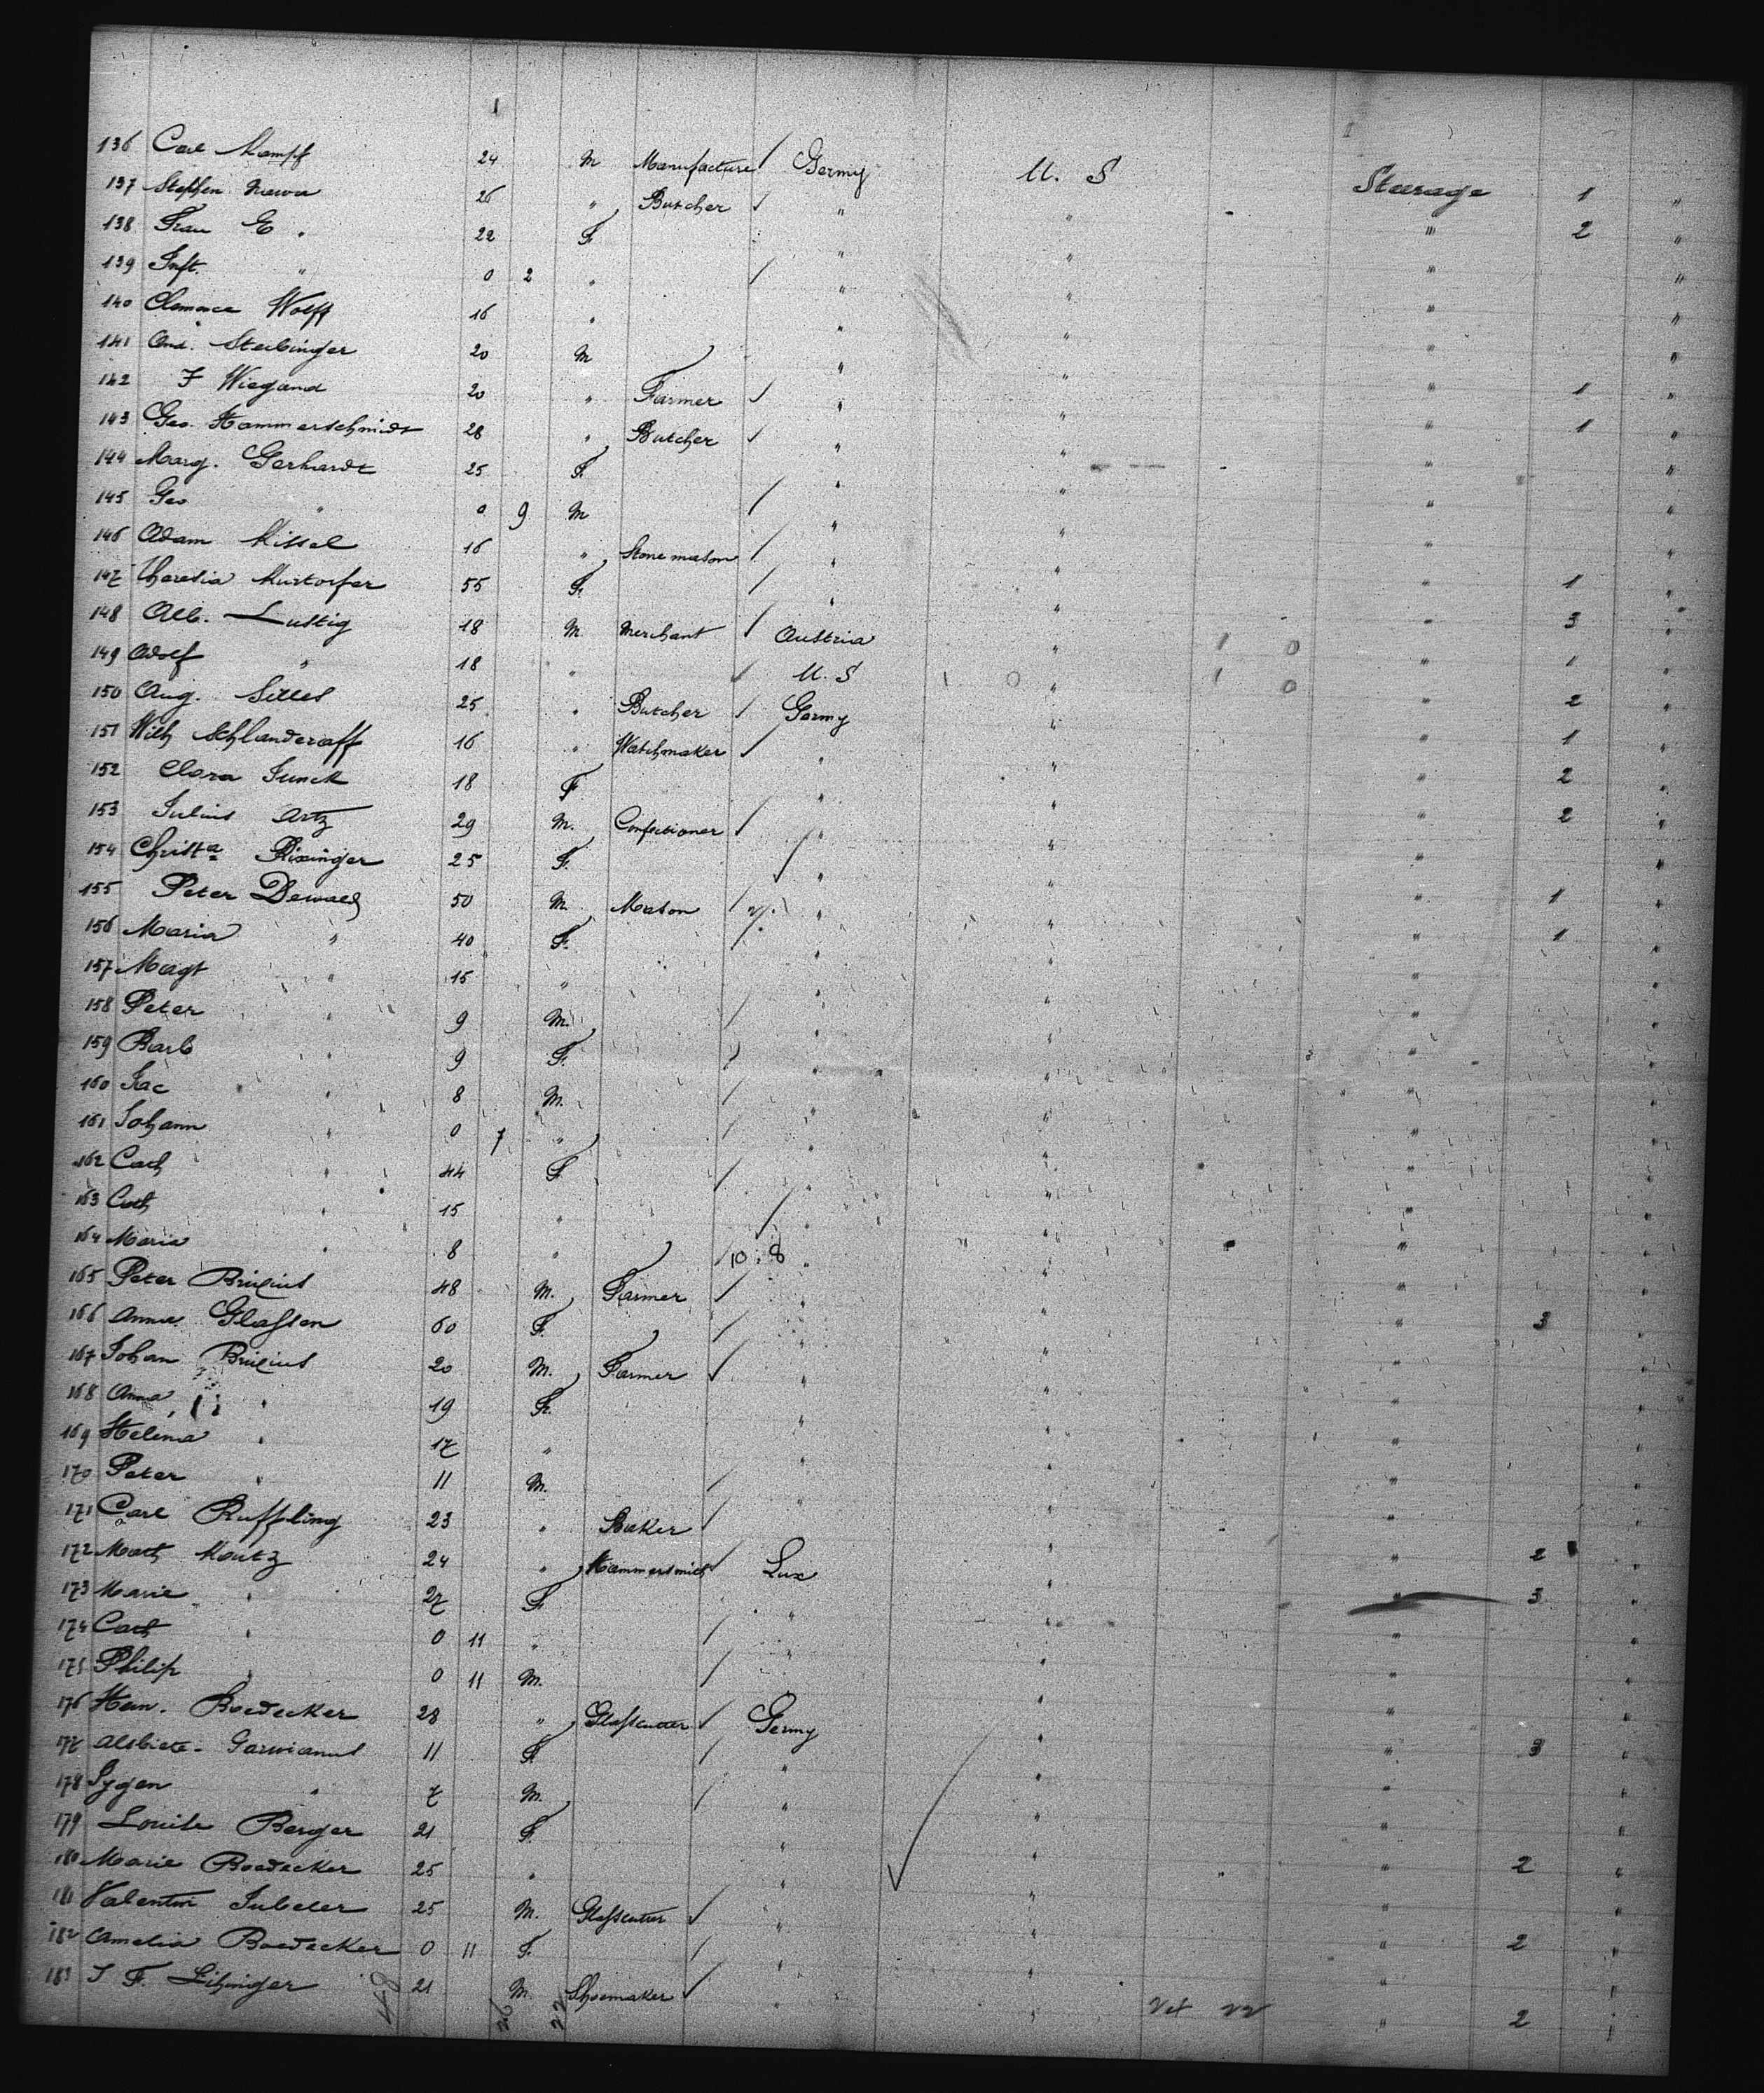 136 Carl Kampf 24 M Manufacture Germy U. S Steerage 1 "
137 Stephen 26 " Butcher " " " 2 "
138 Frau E " 22 F " " " "
139 Inft. " 0 2 " " " " "
140 Clemence Wolff 16 " " " " "
141 And. Steibinger 20 M " " " 1 "
142 F Wiegand 20 " Farmer " " " 1 "
143 Geo. Hammerschmidt 28 " Butcher " " " "
144 Marg. Gerhardt 25 F. " " " "
145 Geo " 0 9 M " " " "
146 Adam Kissel 16 " Stone mason " " " 1 "
147 Theresia 55 F. " " " 3 "
148 Alb. Lustig 18 M Merchant Austria " 1 0 " 1 "
149 Adolf " 18 " U. S 1 0 " 1 0 " 2 "
150 Aug. 25 " Butcher Germy " " 1 "
151 Wilh Schlanderaff 16 " Watchmaker " " " 2 "
152 Clara Junck 18 F " " " 2 "
153 Julius Artz 29 M. Confectioner " " " "
154 Christa Rixinger 25 F. " " " 1 "
155 Peter Dewald 50 M. Mason " " " 1 "
156 Maria " 40 F. " " " "
157 Magt " 15 " " " " "
158 Peter " 9 M. " " " "
159 Barb " 9 F. " " " "
160 Jac " 8 M. " " " "
161 Johann " 0 7 " " " " "
162 Cath " 44 F " " " "
163 Cath " 15 " " " " "
164 Maria " 8 " 10 8 " " " "
165 Peter 48 M. Farmer " " " 3 "
166 Anna Glassen 60 F. " " " "
167 Johan 20 M. Farmer " " " "
168 Anna " 19 F. " " " "
169 Helena " 17 " " " " "
170 Peter " 11 M. " " " "
171 Carl Ruffling 23 " Baker " " 2
172 Math Kautz 24 " Hammersmith Lux " " 3 "
173 Marie " 27 F " " " "
174 Cath " 0 11 " " " " "
175 Philip " 0 11 M. " " "
176 Hein. Boedecker 28 " Glasscutter Germy " " 3 "
177 11 F. " " " "
178 " 7 M. " " " "
179 Louise Berger 21 F. " " " 2 "
180 Marie Boedecker 25 " " " " "
181 Valentin Jubeler 25 M. Glasscutter " " " 2 "
182 Amelia Boedecker 0 11 F. " " " "
183 J F. 21 M. Shoemaker " " " 2 "
48 26 22